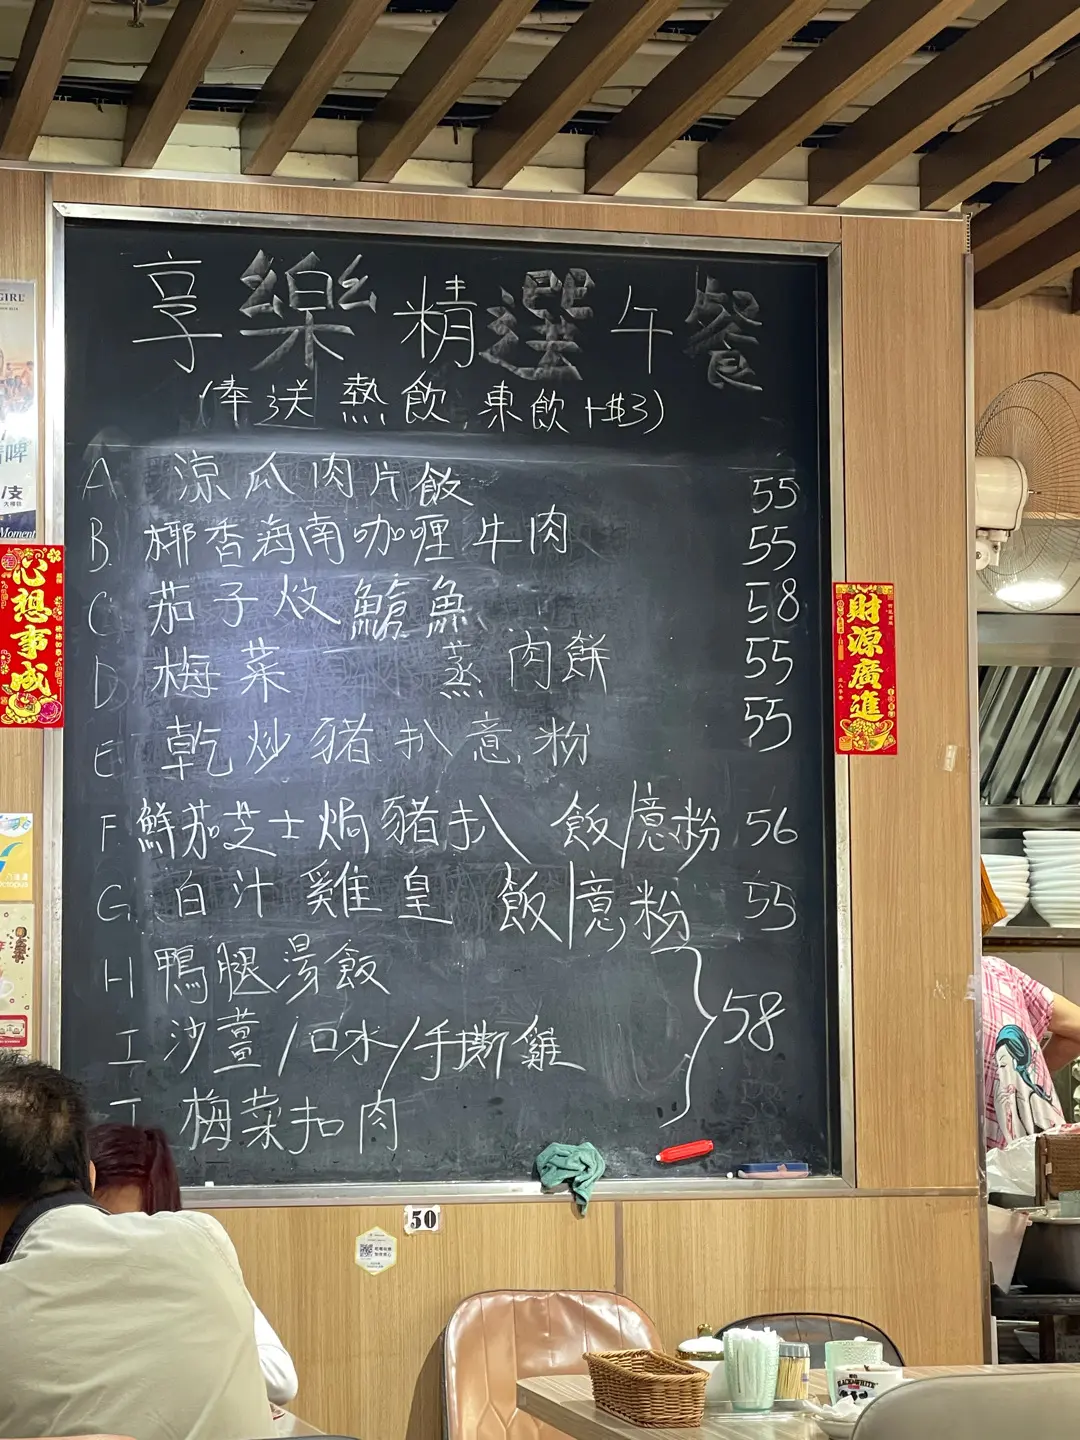 享樂精選午餐
(奉送熱飲 凍飲+$3)
A 涼瓜肉片飯 55
B. 椰香海南咖喱牛肉 55
C 茄子炆鯧魚 58
D 梅菜蒸肉餅 55
E 乾炒豬扒意粉 55
F. 鮮茄芝士焗豬扒 飯/意粉 56
G. 白汁雞皇 飯/意粉 55
H 鴨腿湯飯
I 沙薑/口水/手撕雞 58
J 梅菜扣肉
心想事成
財源廣進
GIRL
啤
Moment
Octopus
50
BLACK&WHITE